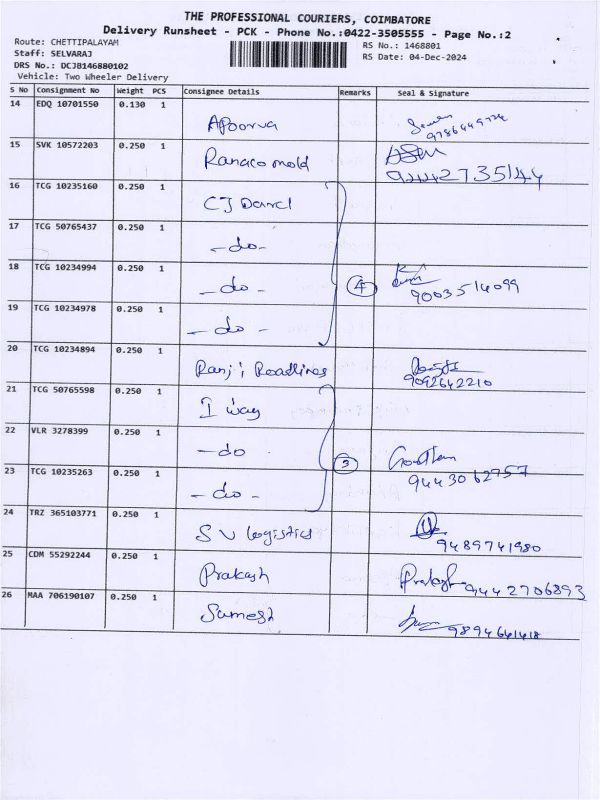 THE PROFESSIONAL COURIERS, COIMBATORE
Delivery Runsheet - PCK - Phone No.:0422-3505555 - Page No.:2
Route: CHETTIPALAYAM RS No.: 1468801
Staff: SELVARAJ RS Date: 04-Dec-2024
DRS No.: DCJB146880102
Vehicle: Two Wheeler Delivery
S No Consignment No Weight PCS Consignee Details Remarks Seal & Signature
14 EDQ 10701550 0.130 1 Apoorva
15 SVK 10572203 0.250 1 Ranaco mold
16 TCG 10235160 0.250 1 CJ
17 TCG 50765437 0.250 1 -do-
18 TCG 10234994 0.250 1 -do- 4 9003514099
19 TCG 10234978 0.250 1 -do-
20 TCG 10234894 0.250 1 Ranji Roadlines 9092642210
21 TCG 50765598 0.250 1 I way
22 VLR 3278399 0.250 1 -do 3 Gowtham
23 TCG 10235263 0.250 1 -do- 9443062757
24 TRZ 365103771 0.250 1 S V Logistics 9489741980
25 CDM 55292244 0.250 1 Prakash Prakash 9442706893
26 MAA 706190107 0.250 1 Sumesh 9894641418